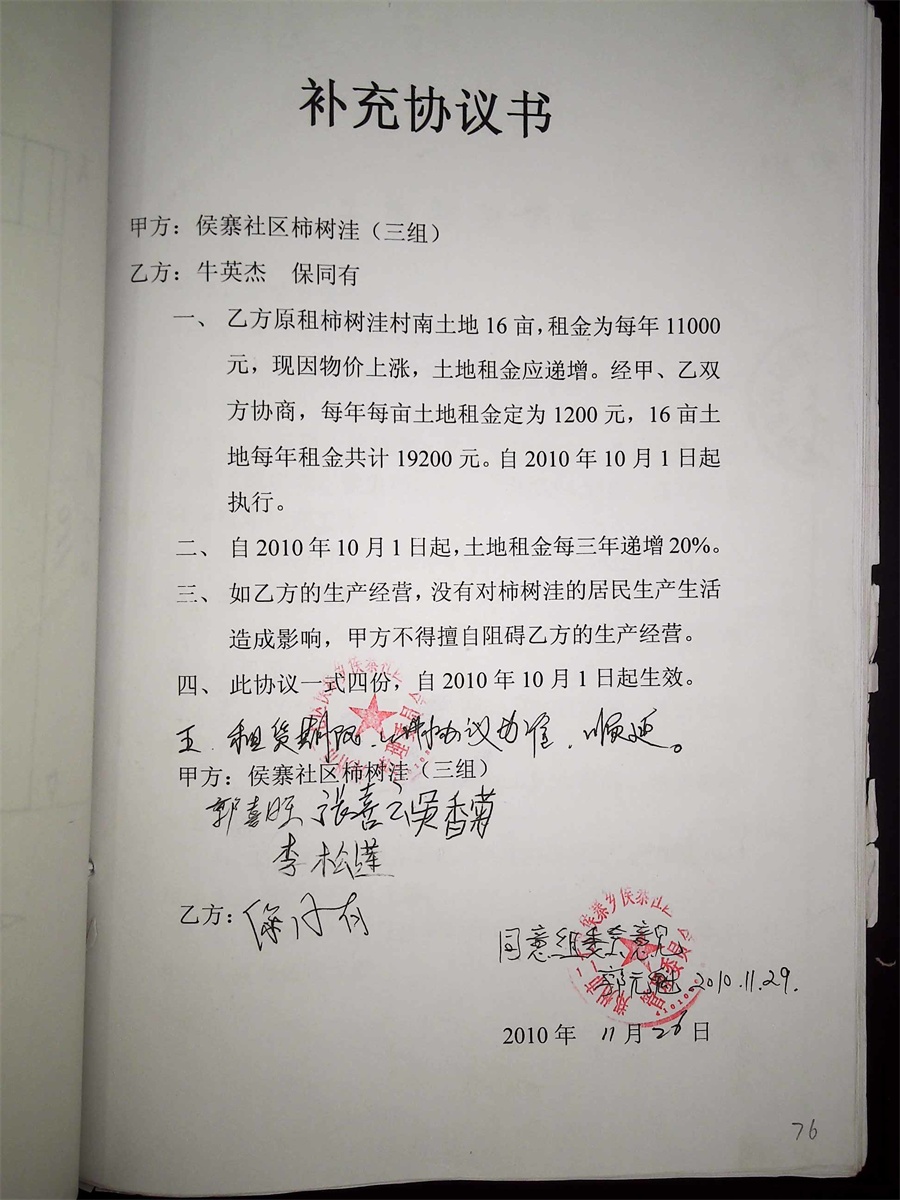 补充协议书
甲方：侯寨社区柿树洼（三组）
乙方：牛英杰 保同有
一、 乙方原租柿树洼村南土地16亩，租金为每年11000
元，现因物价上涨，土地租金应递增。经甲、乙双
方协商，每年每亩土地租金定为1200元，16亩土
地每年租金共计19200元。自2010年10月1日起
执行。
二、 自2010年10月1日起，土地租金每三年递增20%。
三、 如乙方的生产经营，没有对柿树洼的居民生产生活
造成影响，甲方不得擅自阻碍乙方的生产经营。
四、 此协议一式四份，自2010年10月1日起生效。
五.租赁期限 协议为准.顺延。
甲方：侯寨社区柿树洼（三组）
郭喜旺 张喜云 吴香菊
李松莲
乙方：保同有
同意组委会意见
郭元 2010.11.29.
2010年 11月26日
76